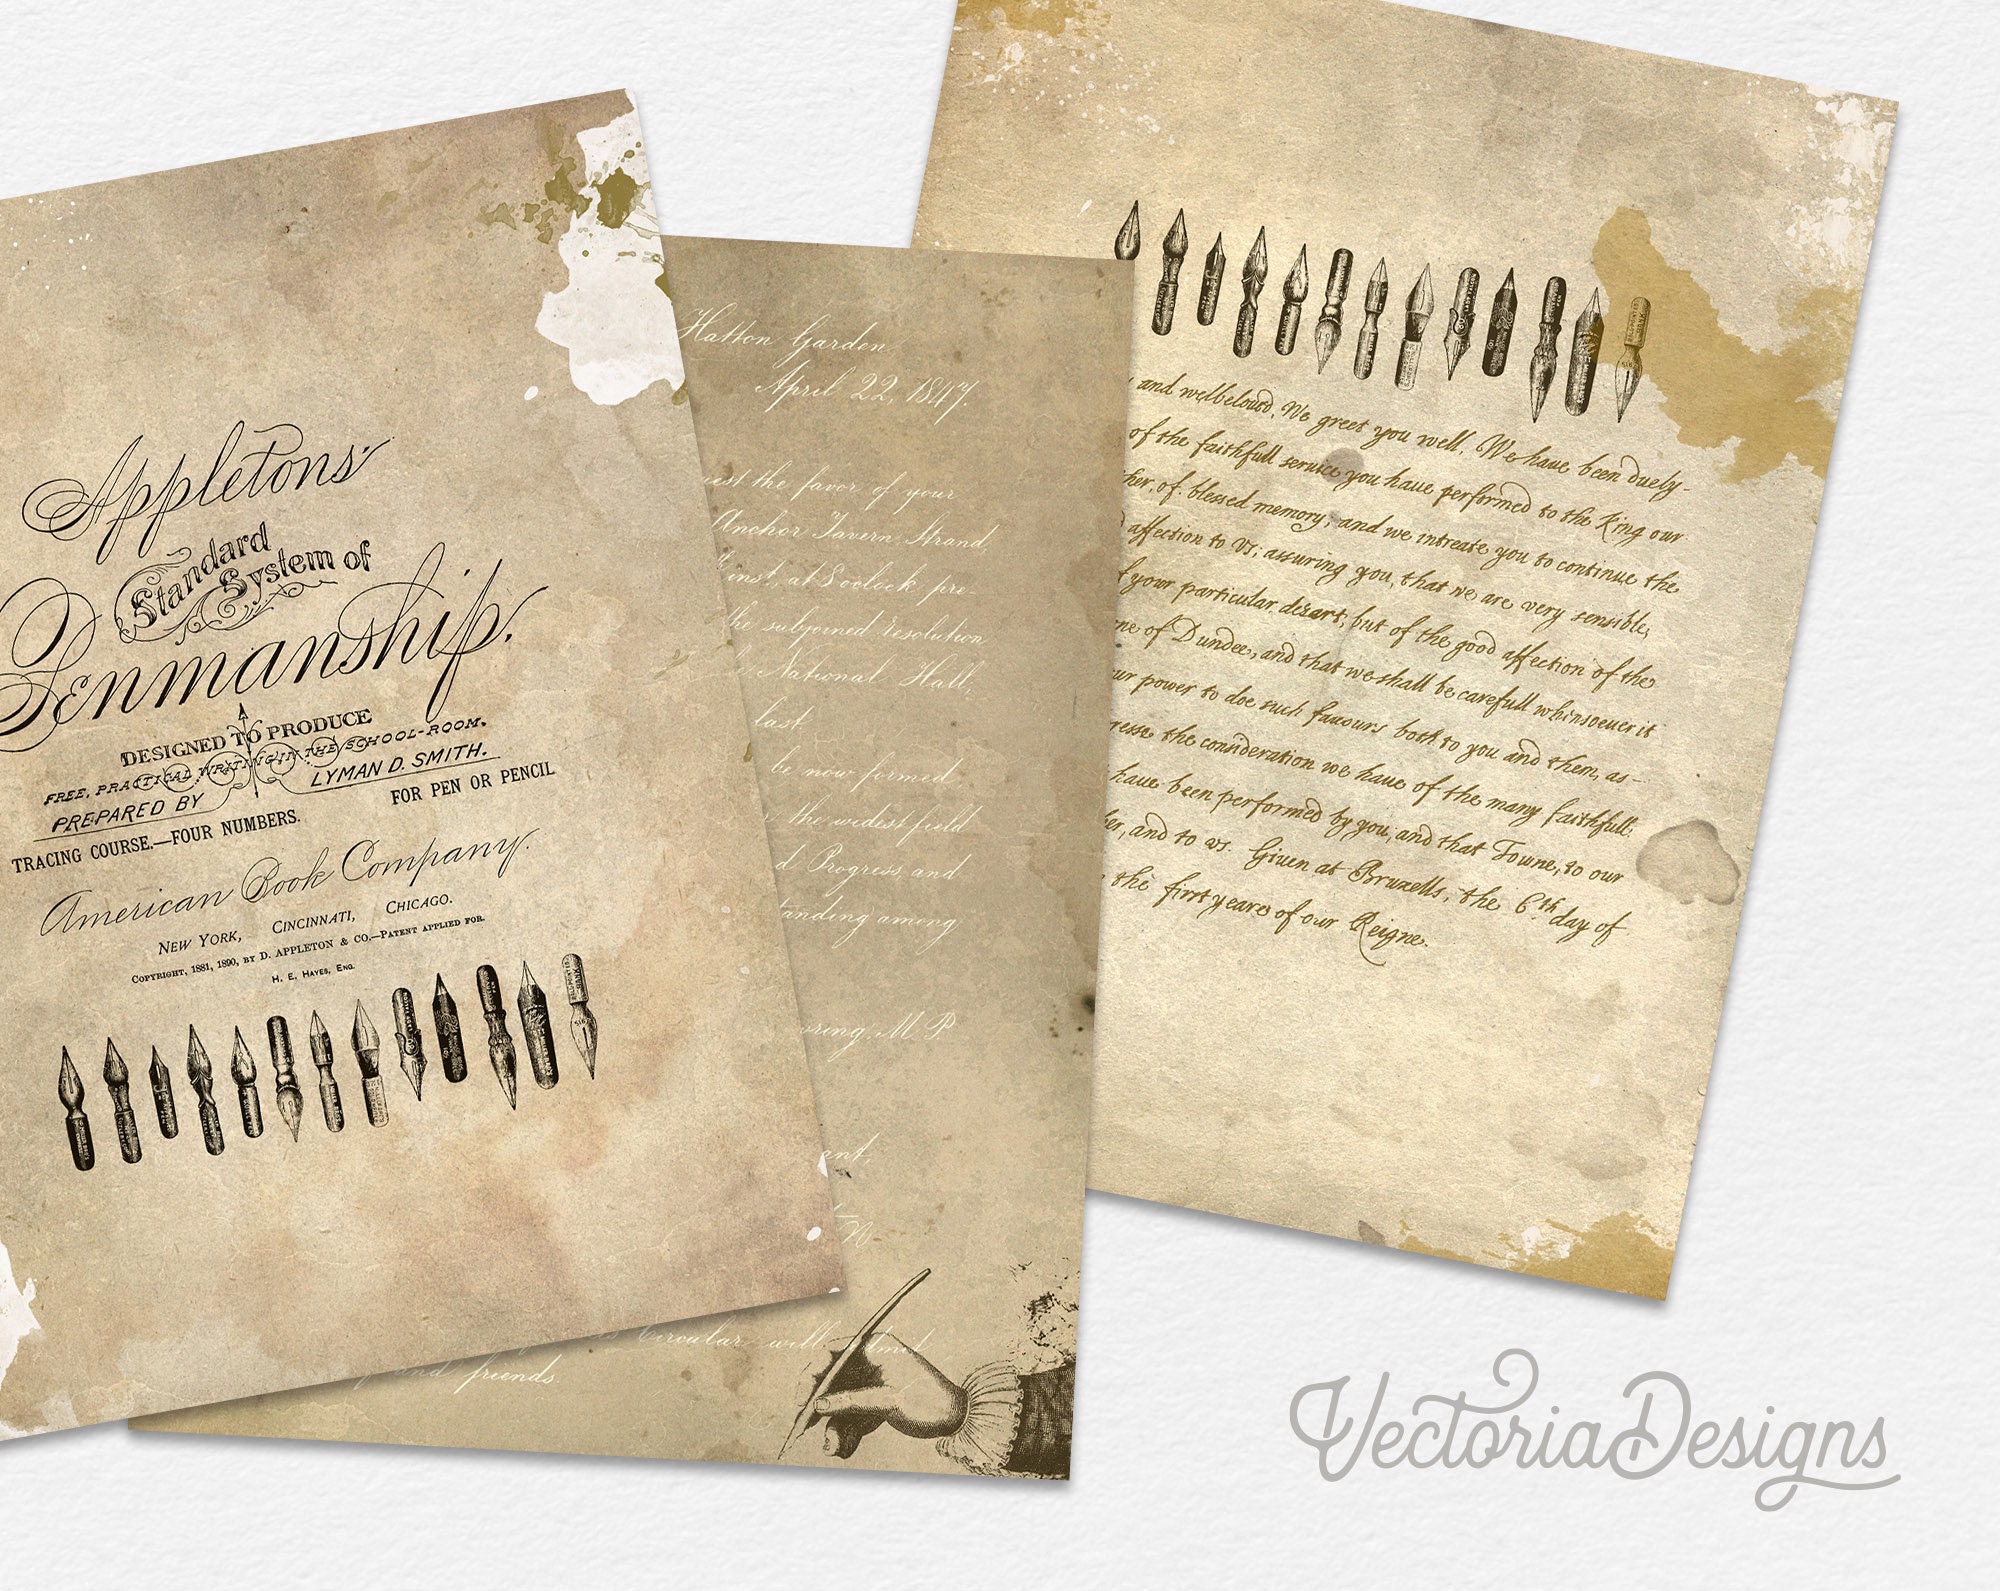 Appletons'
Standard
System of
Penmanship.
DESIGNED TO PRODUCE
FREE, PRACTICAL WRITING IN THE SCHOOL-ROOM.
PREPARED BY LYMAN D. SMITH.
TRACING COURSE.—FOUR NUMBERS. FOR PEN OR PENCIL
American Book Company.
NEW YORK, CINCINNATI, CHICAGO.
COPYRIGHT, 1881, 1890, BY D. APPLETON & CO.—PATENT APPLIED FOR.
H. E. HAYES, ENG.
Hatton Garden
April 22, 1847.
the favor of your
Anchor Tavern, Strand,
inst., at 8 o'clock pre-
the subjoined Resolution
National Hall,
last
be now formed
the widest field
Progress, and
among
M P
Circular will
and friends.
and welbeloued, We greet you well. We haue been duely-
of the faithfull seruice you haue performed to the King our
of blessed memory; and we intreate you to continue the
affection to Vs; assuring you, that we are very sensible,
your particular desart; but of the good affection of the
of Dundee, and that we shall be carefull whinsoeuer it
power to doe such fauours both to you and them, as-
the consideration we haue of the many faithfull
haue been performed by you, and that Towne, to our
and to vs. Giuen at Bruxells, the 6th day of
the first yeare of our Reigne.
VectoriaDesigns